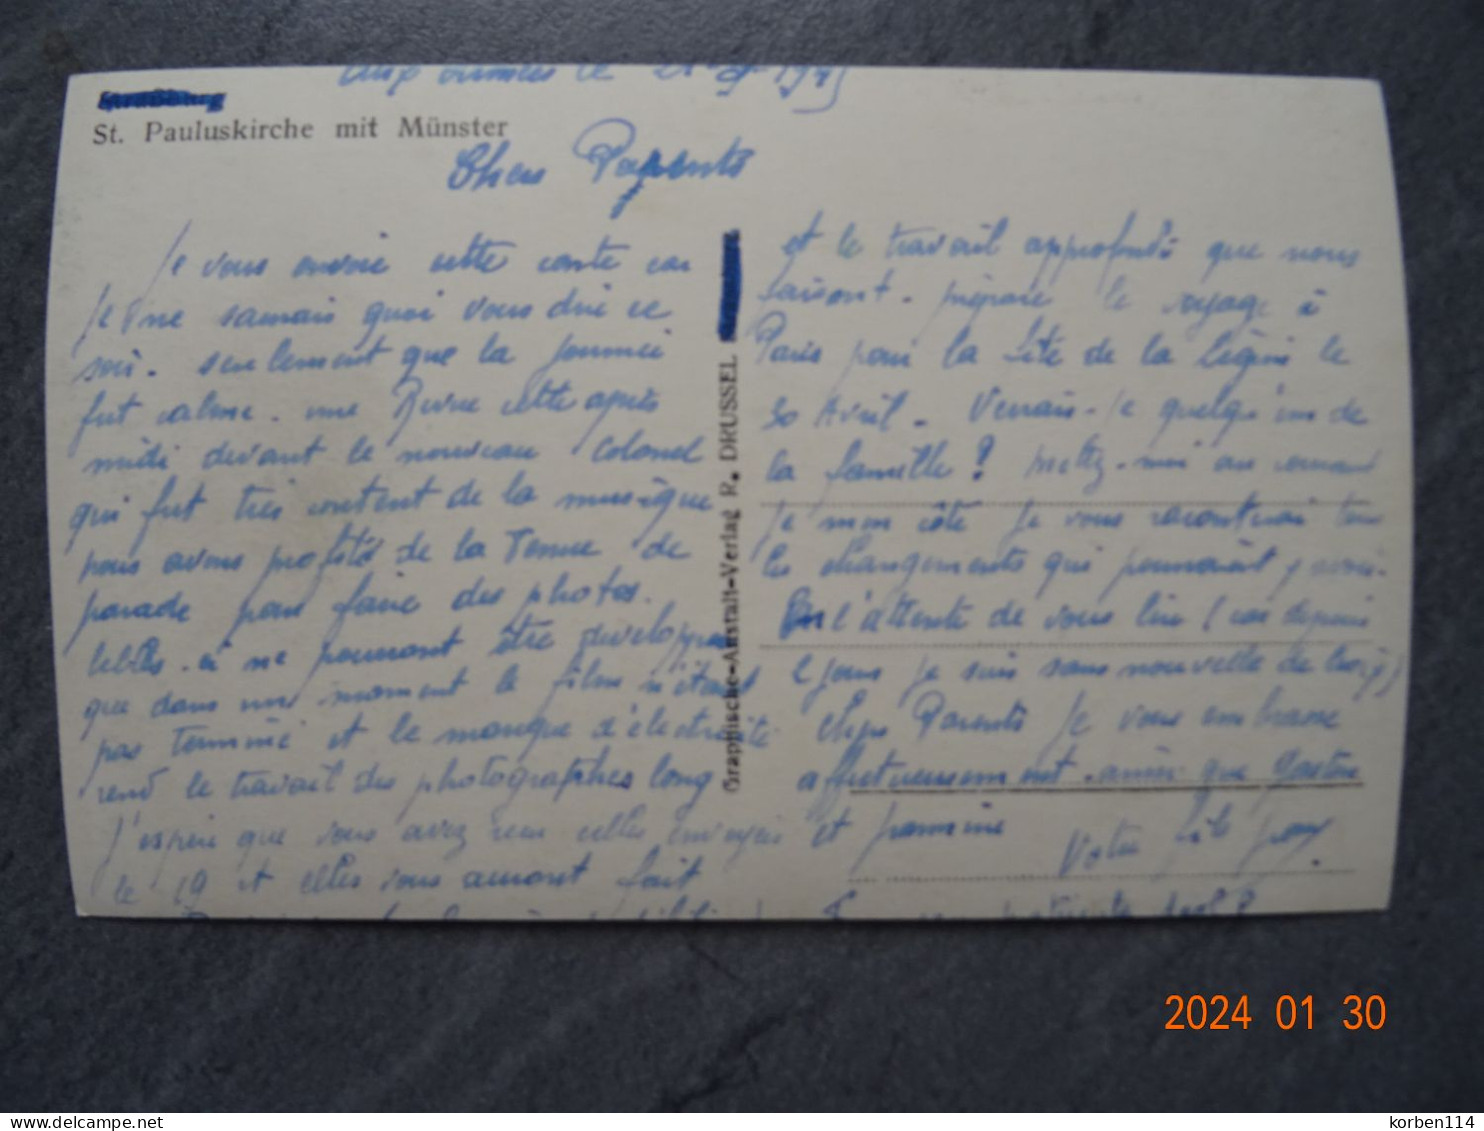 Aux armées le 1945
St. Pauluskirche mit Münster
Chers Parents
Je vous envoie cette carte car
Je ne saurais quoi vous dire ce
soir. seulement que la journée
fut calme. une Revue cette après
midi devant le nouveau Colonel
qui fut très content de la musique
nous avons profité de la Tenue de
parade pour faire des photos.
celles-ci ne pourront être développées
que dans un moment le film n'étant
pas Terminé et le manque d'électricité
rend le travail des photographes long
J'espère que vous avez reçu celles envoyées
le 19 et elles vous auront fait
Graphische-Anstalt-Verlag R. DRUSSEL
et le travail approfondi que nous
faisont. prépare le voyage à
Paris pour la fête de la Légion le
30 Avril. Verrais-je quelqu'un de
la famille? mettez-moi au courant
je mon côté je vous raconterai tous
les changements qui pourraient y avoir.
En l'attente de vous lire (car depuis
jours je suis sans nouvelle de
chers Parents Je vous embrasse
affectueusement. ainsi que Gaston
et
Votre fils
2024 01 30
korben114